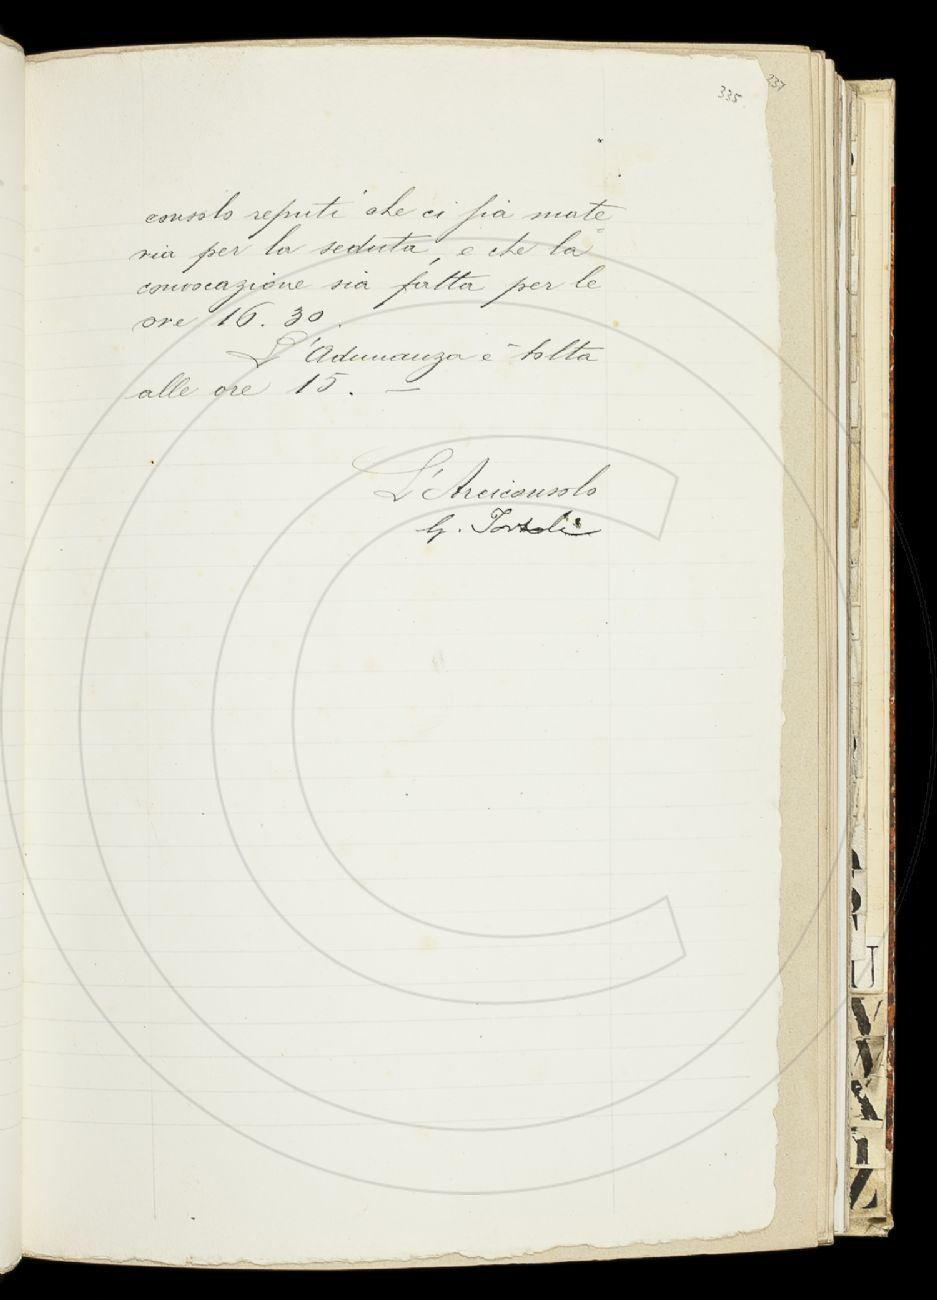 335.
237
consolo reputi che ci sia mate=
ria per la seduta, e che la
convocazione sia fatta per le
ore 16.30.
L'Adunanza è tolta
alle ore 15. —
L'Arciconsolo
G. Tortoli
U
V
X
Z